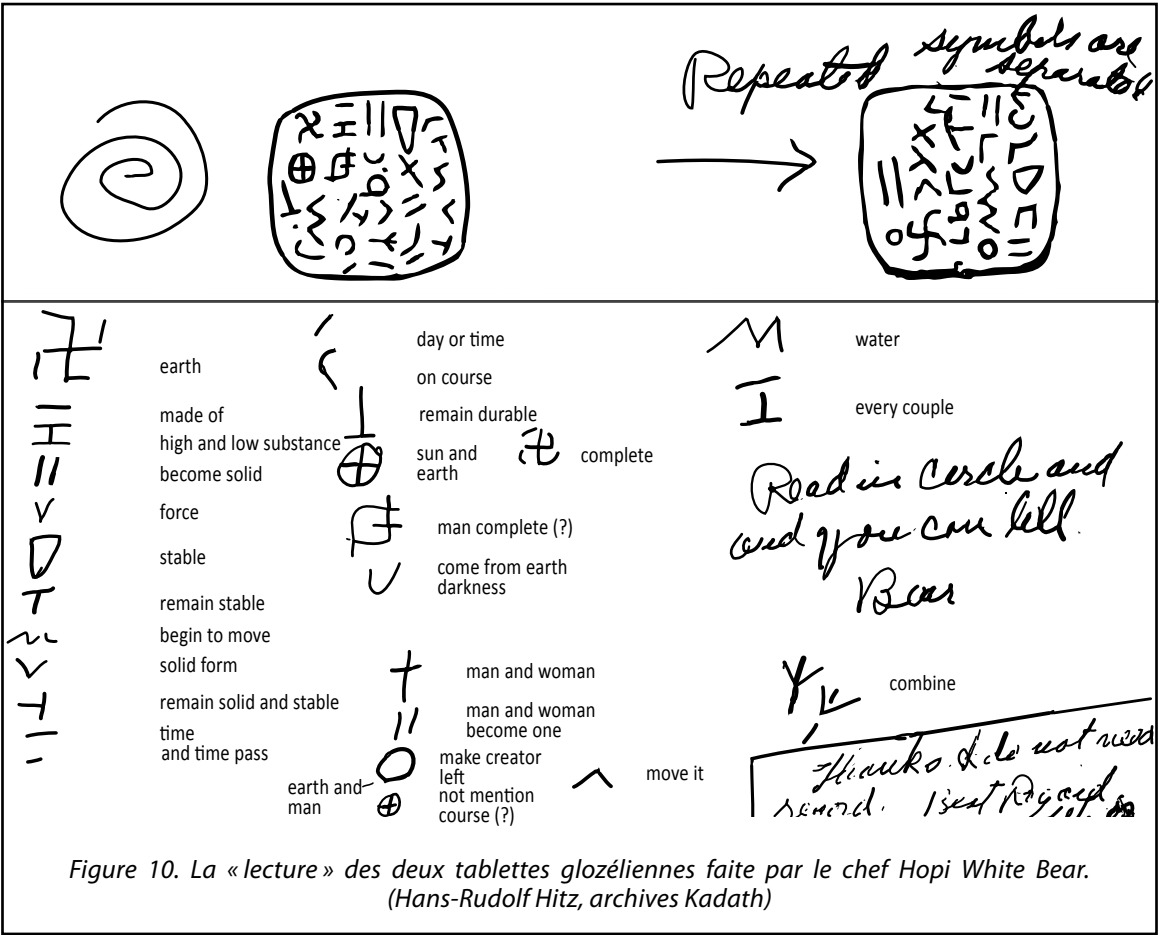 Repeated symbols are
separated
earth
made of
high and low substance
become solid
force
stable
remain stable
begin to move
solid form
remain solid and stable
time
and time pass
day or time
on course
remain durable
sun and
earth
complete
man complete (?)
come from earth
darkness
man and woman
man and woman
become one
make creator
left
not mention
course (?)
earth and
man
move it
water
every couple
Read in cercle and
and you can tell.
Bear
combine
Thanks I do not need
record. Best Regard
Figure 10. La « lecture » des deux tablettes glozéliennes faite par le chef Hopi White Bear.
(Hans-Rudolf Hitz, archives Kadath)